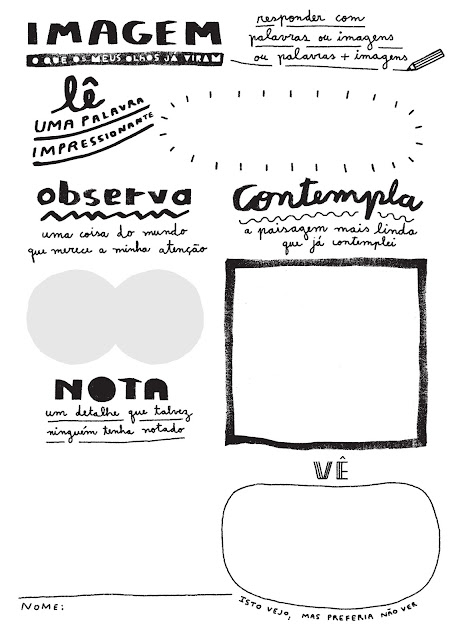 IMAGEM
O QUE OS MEUS OLHOS JÁ VIRAM
responder com
palavras ou imagens
ou palavras + imagens
lê
UMA PALAVRA
IMPRESSIONANTE
observa
uma coisa do mundo
que merece a minha atenção
contempla
a paisagem mais linda
que já contemplei
NOTA
um detalhe que talvez
ninguém tenha notado
VÊ
ISTO VEJO, MAS PREFERIA NÃO VER
NOME: